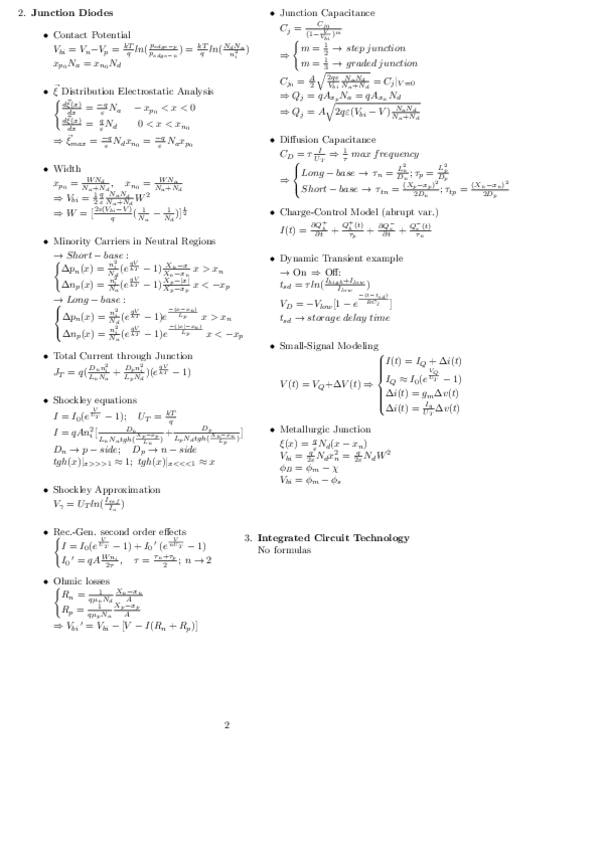 2. Junction Diodes
• Contact Potential
V_bi = V_n − V_p = kT/q ln(p_edge−p / p_edge−n) = kT/q ln(N_d N_a / n_i^2)
x_p0 N_a = x_n0 N_d
• ξ⃗ Distribution Electrostatic Analysis
{ dξ(x)/dx = −q/ε N_a   − x_p0 < x < 0
dξ(x)/dx = q/ε N_d   0 < x < x_n0
⇒ ξ⃗_max = −q/ε N_d x_n0 = −q/ε N_a x_p0
• Width
x_p0 = W N_d / (N_a + N_d),   x_n0 = W N_a / (N_a + N_d)
⇒ V_bi = 1/2 q/ε N_a N_d / (N_a + N_d) W^2
⇒ W = [2ε(V_bi − V)/q (1/N_a − 1/N_d)]^1/2
• Minority Carriers in Neutral Regions
→ Short − base :
{ Δp_n(x) = n_i^2/N_d (e^(qV/kT) − 1) (X_n − x)/(X_n − x_n)  x > x_n
Δn_p(x) = n_i^2/N_a (e^(qV/kT) − 1) (X_p − |x|)/(X_p − x_p)  x < −x_p
→ Long − base :
{ Δp_n(x) = n_i^2/N_d (e^(qV/kT) − 1) e^(−(x − x_n)/L_p)  x > x_n
Δn_p(x) = n_i^2/N_a (e^(qV/kT) − 1) e^(−(|x| − x_p)/L_p)  x < −x_p
• Total Current through Junction
J_T = q(D_n n_i^2 / L_n N_a + D_p n_i^2 / L_p N_d)(e^(qV/kT) − 1)
• Shockley equations
I = I_0(e^(V/U_T) − 1);   U_T = kT/q
I = qAn_i^2 [D_n / (L_n N_a tgh((X_p − x_p)/L_n)) + D_p / (L_p N_d tgh((X_n − x_n)/L_p))]
D_n → p − side;   D_p → n − side
tgh(x)|_x>>>1 ≈ 1; tgh(x)|_x<<<1 ≈ x
• Shockley Approximation
V_γ = U_T ln(I_ref / I_o)
• Rec.-Gen. second order effects
{ I = I_0(e^(V/U_T) − 1) + I_0′ (e^(V/nU_T) − 1)
I_0′ = qA W n_i / 2τ,   τ = (τ_n + τ_p)/2; n → 2
• Ohmic losses
{ R_n = 1/(qμ_n N_d) (X_n − x_n)/A
R_p = 1/(qμ_p N_a) (X_p − x_p)/A
⇒ V_bi′ = V_bi − [V − I(R_n + R_p)]
• Junction Capacitance
C_j = C_j0 / (1 − V/V_bi)^m
⇒ { m = 1/2 → step junction
m = 1/3 → graded junction
C_j0 = A/2 √(2qε/V_bi N_a N_d/(N_a + N_d)) = C_j|_V=0
⇒ Q_j = qA x_p N_a = qA x_n N_d
⇒ Q_j = A√(2qε(V_bi − V) N_a N_d/(N_a + N_d))
• Diffusion Capacitance
C_D = τ I/U_T ⇒ 1/τ max frequency
⇒ { Long − base → τ_n = L_n^2/D_n; τ_p = L_p^2/D_p
Short − base → τ_tn = (X_p − x_p)^2/2D_n; τ_tp = (X_n − x_n)^2/2D_p
• Charge-Control Model (abrupt var.)
• Dynamic Transient example
→ On ⇒ Off:
t_sd = τ ln((I_high + I_low)/I_low)
t_sd → storage delay time
• Small-Signal Modeling
V(t) = V_Q + ΔV(t) ⇒ { I(t) = I_Q + Δi(t)
I_Q ≈ I_0(e^(V_Q/U_T) − 1)
Δi(t) = g_m Δv(t)
Δi(t) = I_Q/U_T Δv(t)
• Metallurgic Junction
ξ(x) = q/ε N_d(x − x_n)
V_bi = q/2ε N_d x_n^2 = q/2ε N_d W^2
ϕ_B = ϕ_m − χ
V_bi = ϕ_m − ϕ_s
3. Integrated Circuit Technology
No formulas
2